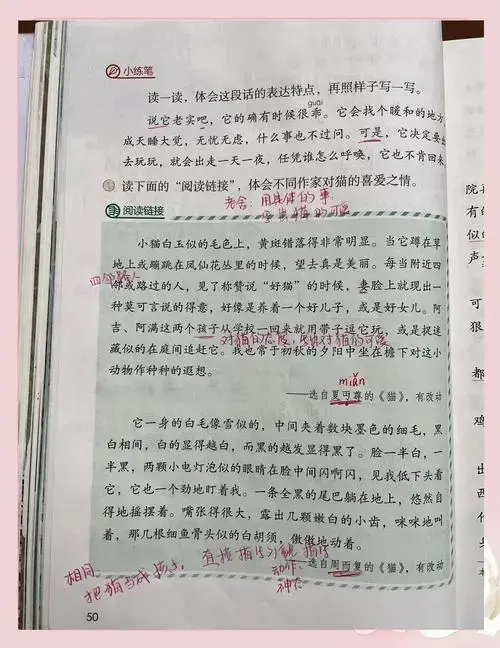 小练笔
读一读，体会这段话的表达特点，再照样子写一写。
guāi
说它老实吧，它的确有时候很乖。它会找个暖和的地方
成天睡大觉，无忧无虑，什么事也不过问。可是，它决定要出
去玩玩，就会出走一天一夜，任凭谁怎么呼唤，它也不肯回来
读下面的“阅读链接”，体会不同作家对猫的喜爱之情。
老舍：用具体的事
写出猫的可爱
阅读链接
小猫白玉似的毛色上，黄斑错落得非常明显。当它蹲在草
地上或蹦跳在凤仙花丛里的时候，望去真是美丽。每当附近四
邻或路过的人，见了称赞说“好猫”的时候，妻脸上就现出一
种莫可言说的得意，好像是养着一个好儿子，或是好女儿。阿
吉、阿满这两个孩子从学校一回来就用带子逗它玩，或是捉迷
对猫的态度，
藏似的在庭间追赶它。我也常于初秋的夕阳中坐在檐下对这小
动物作种种的遐想。
miǎn
——选自夏丏尊的《猫》，有改动
它一身的白毛像雪似的，中间夹着数块墨色的细毛，黑
白相间，白的显得越白，而黑的越发显得黑了。脸一半白，一
半黑，两颗小电灯泡似的眼睛在脸中间闪啊闪，见我低下头看
它，它也一个劲地盯着我。一条全黑的尾巴躺在地上，悠然自
得地摇摆着。嘴张得很大，露出几颗嫩白的小齿，咪咪地叫
着，那几根细鱼骨头似的白胡须，傲傲地动着。
直接描写外貌描写
动作、
——选自周而复的《猫》，有改动
神态
相同：
把猫当成孩子。
50
院
有
似的
声
都